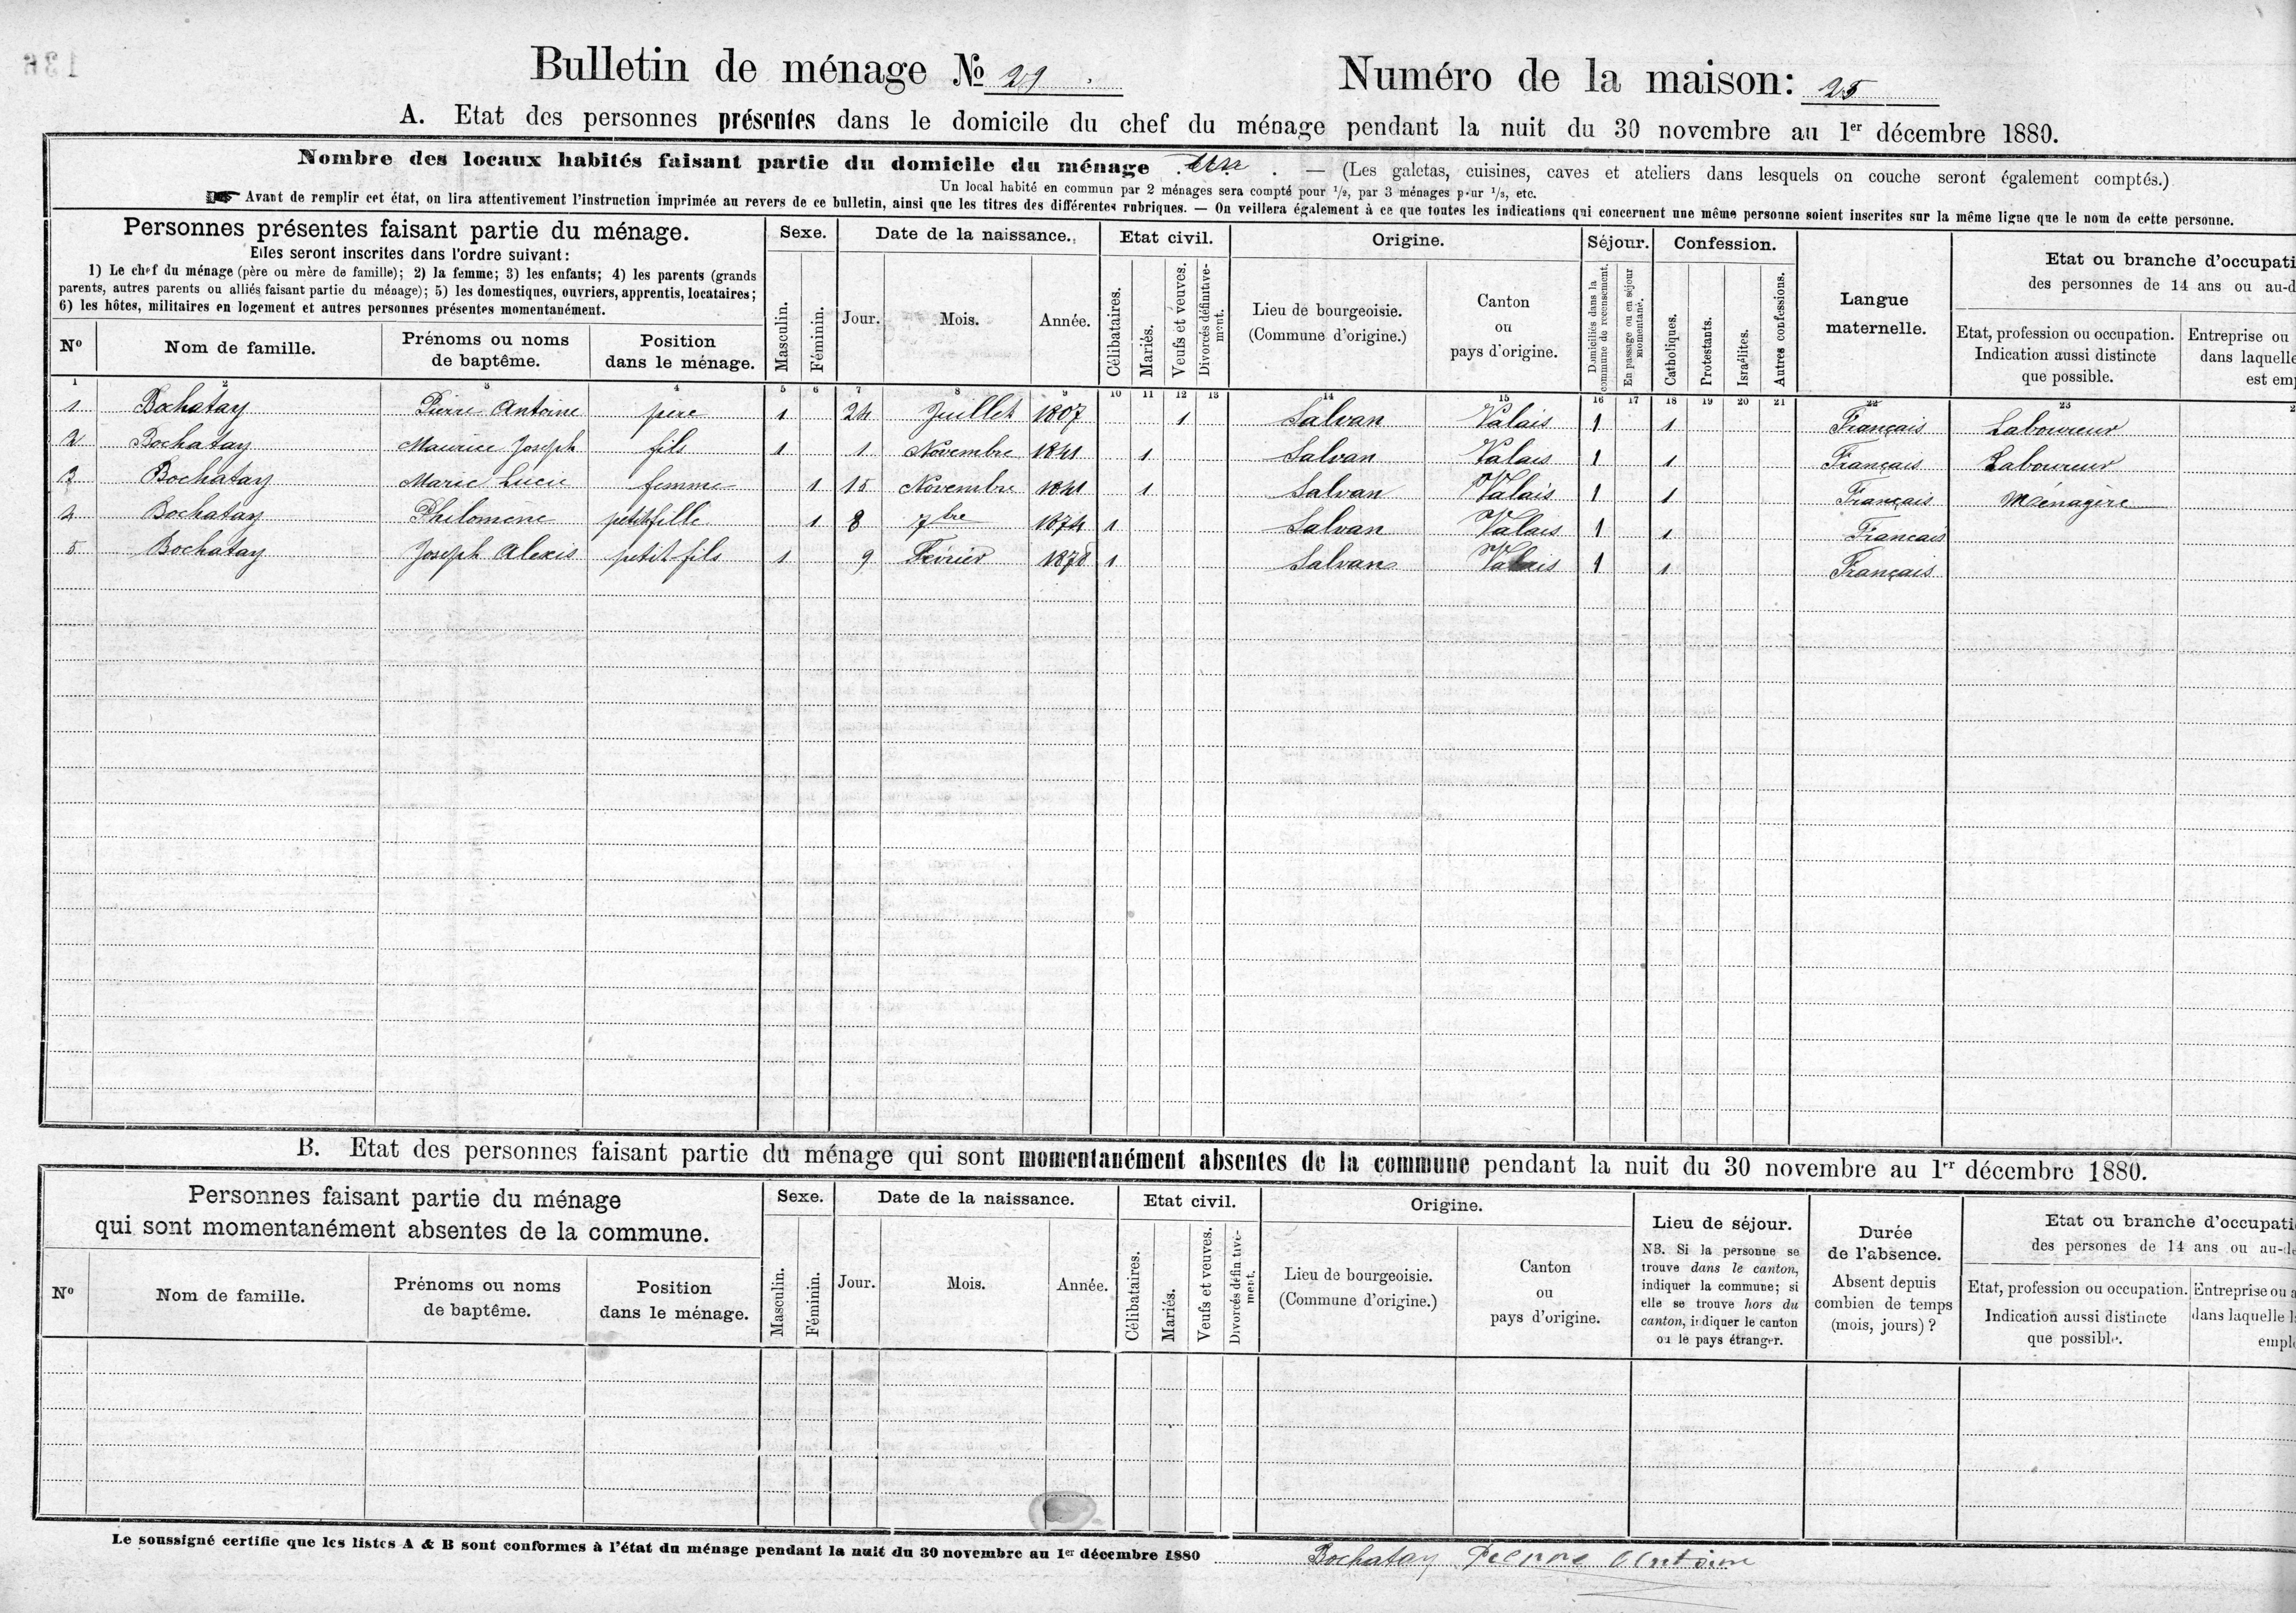 Bulletin de ménage No 29. Numéro de la maison: 25
A. Etat des personnes présentes dans le domicile du chef du ménage pendant la nuit du 30 novembre au 1er décembre 1880.
Nombre des locaux habités faisant partie du domicile du ménage un. — (Les galetas, cuisines, caves et ateliers dans lesquels on couche seront également comptés.)
Un local habité en commun par 2 ménages sera compté pour 1/2, par 3 ménages pour 1/3, etc.
Avant de remplir cet état, on lira attentivement l'instruction imprimée au revers de ce bulletin, ainsi que les titres des différentes rubriques. — On veillera également à ce que toutes les indications qui concernent une même personne soient inscrites sur la même ligne que le nom de cette personne.
Personnes présentes faisant partie du ménage.
Elles seront inscrites dans l'ordre suivant:
1) Le chef du ménage (père ou mère de famille); 2) la femme; 3) les enfants; 4) les parents (grands
parents, autres parents ou alliés faisant partie du ménage); 5) les domestiques, ouvriers, apprentis, locataires;
6) les hôtes, militaires en logement et autres personnes présentes momentanément.
No
Nom de famille.
Prénoms ou noms
de baptême.
Position
dans le ménage.
Sexe.
Masculin.
Féminin.
Date de la naissance.
Jour.
Mois.
Année.
Etat civil.
Célibataires.
Mariés.
Veufs et veuves.
Divorcés définitive-
ment.
Origine.
Lieu de bourgeoisie.
(Commune d'origine.)
Canton
ou
pays d'origine.
Séjour.
Domiciliés dans la
commune de recensement.
En passage ou en séjour
momentané.
Confession.
Catholiques.
Protestants.
Israélites.
Autres confessions.
Langue
maternelle.
Etat ou branche d'occupati
des personnes de 14 ans ou au-d
Etat, profession ou occupation.
Indication aussi distincte
que possible.
Entreprise ou
dans laquelle
est emp
1 2 3 4 5 6 7 8 9 10 11 12 13 14 15 16 17 18 19 20 21 22 23 2
1 Bochatay Pierre Antoine père 1 24 Juillet 1807 1 Salvan Valais 1 1 Français Laboureur
2 Bochatay Maurice Joseph fils 1 1 Novembre 1841 1 Salvan Valais 1 1 Français Laboureur
3 Bochatay Marie Lucie femme 1 15 Novembre 1841 1 Salvan Valais 1 1 Français Ménagère
4 Bochatay Philomène petite fille 1 8 7bre 1874 1 Salvan Valais 1 1 Francais
5 Bochatay Joseph Alexis petit fils 1 9 Février 1878 1 Salvan Valais 1 1 Français
B. Etat des personnes faisant partie du ménage qui sont momentanément absentes de la commune pendant la nuit du 30 novembre au 1er décembre 1880.
Personnes faisant partie du ménage
qui sont momentanément absentes de la commune.
No
Nom de famille.
Prénoms ou noms
de baptême.
Position
dans le ménage.
Sexe.
Masculin.
Féminin.
Date de la naissance.
Jour.
Mois.
Année.
Etat civil.
Célibataires.
Mariés.
Veufs et veuves.
Divorcés définitive-
ment.
Origine.
Lieu de bourgeoisie.
(Commune d'origine.)
Canton
ou
pays d'origine.
Lieu de séjour.
NB. Si la personne se
trouve dans le canton,
indiquer la commune; si
elle se trouve hors du
canton, indiquer le canton
ou le pays étranger.
Durée
de l'absence.
Absent depuis
combien de temps
(mois, jours)?
Etat ou branche d'occupati
des persones de 14 ans ou au-de
Etat, profession ou occupation.
Indication aussi distincte
que possible.
Entreprise ou a
dans laquelle l
emplo
Le soussigné certifie que les listes A & B sont conformes à l'état du ménage pendant la nuit du 30 novembre au 1er décembre 1880 Bochatay Pierre Antoine